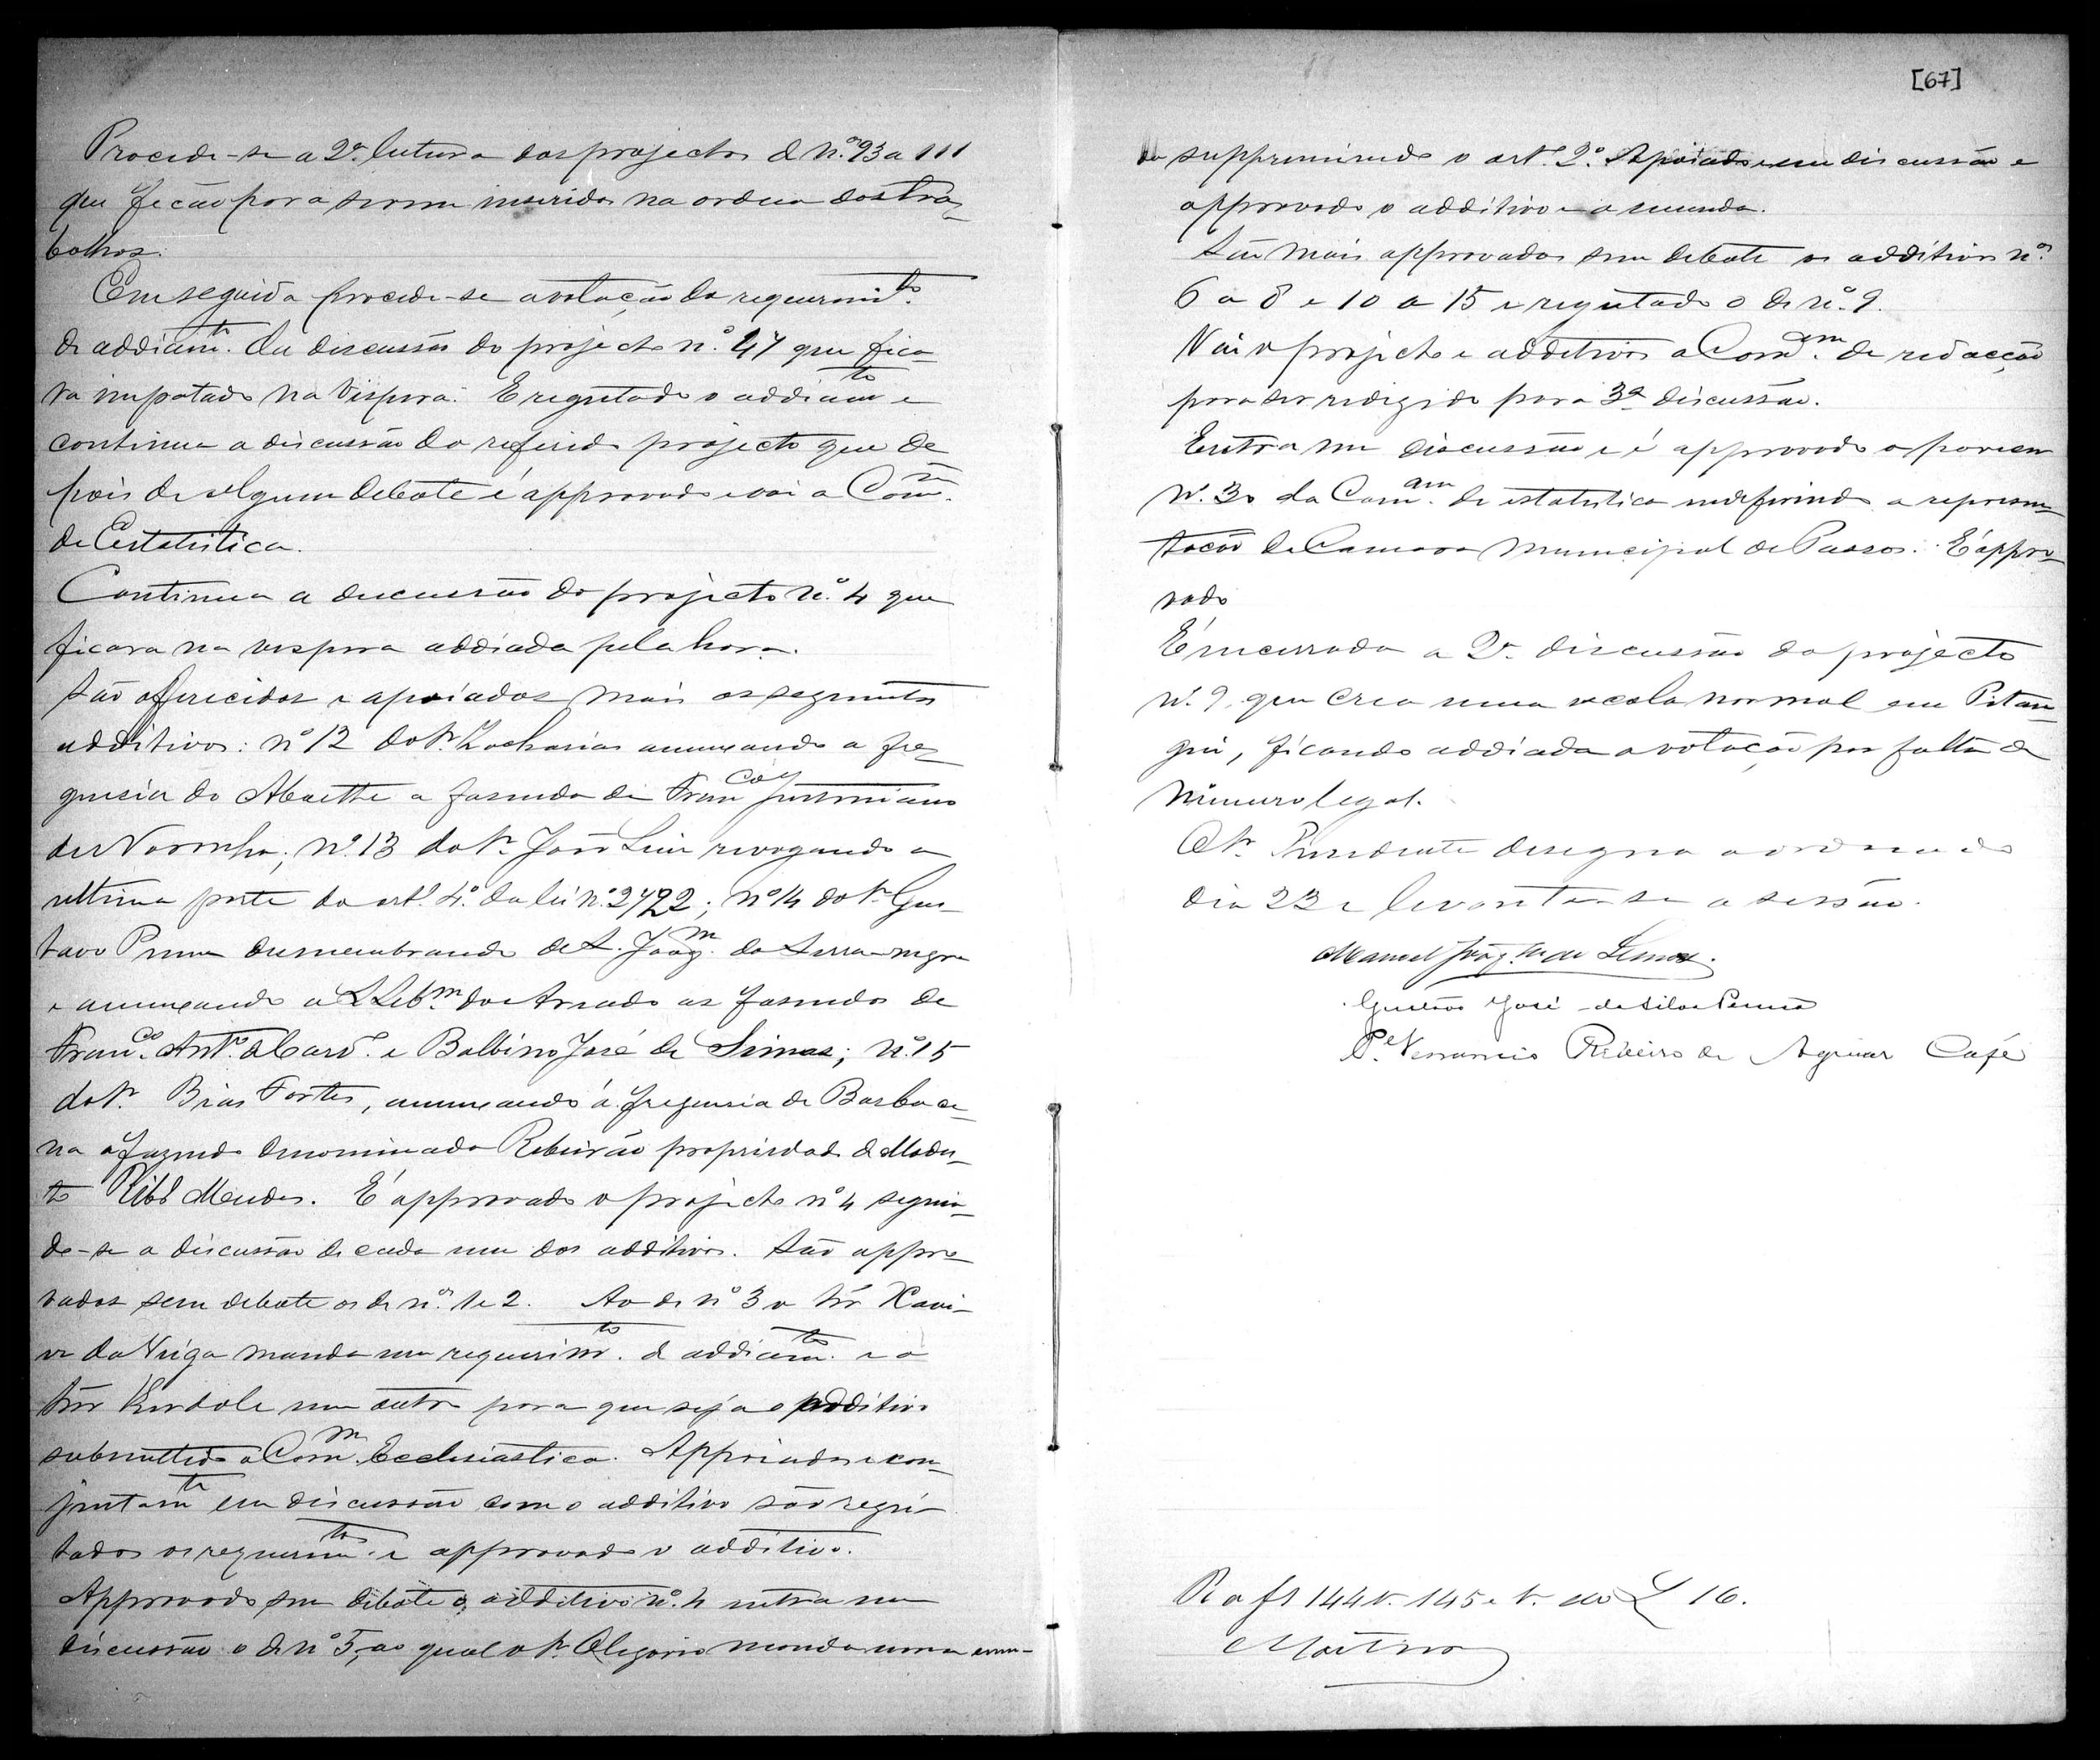 Procede-se a 2ª leitura dos projectos de nos. 93 a 111
que ficão para serem inseridos na ordem dos tra-
balhos.
Em seguida procede-se a votação do requerimto.
de addiamto. da discussão do projecto nº. 47 que fica-
va empatado na vespera. E regeitado o addiamto e
continua a discussão do referido projecto que de
pois de algum debate é approvado e vai a Comm.
de Estatistica.
Continua a discussão do projecto nº. 4 que
ficara na vespera addiada pela hora.
São offerecidos e apoiados mais os seguintes
additivos: nº 12 do Sr. Zacharias annexando a fre-
guesia do Abaethe a fasenda de Franco Justiniano
de Noronha; nº. 13 do Sr. João Luiz revogando a
ultima parte do art. 4º. da lei nº. 2722; nº 14 do Sr. Gus-
tavo Penna desmembrando de S. Joaqm. da Serra-negra
e annexando a S Sebm. do Areado as fasendas de
Franco. Anto. de Card. e Balbino José de Simas; nº. 15
do Sr. Bias Fortes, annexando á freguesia de Barbace-
na a fazenda denominada Ribeirão propriedade de Modes-
to Mendes. É approvado o projecto nº 4 seguin-
do-se a discussão de cada um dos additivos. São appro-
vados sem debate os de nos. 1 e 2. Ao de nº 3 o Snr Xavi-
er da Veiga manda um requerimto. de addiamto. e o
Snr um outro para que seja o additivo
submettido a Comm. Ecclesiastica. Appoiados e con-
juntamte em discussão com o additivo são regei-
tados os requerimtos. e approvado o additivo.
Approvado sem debate o additivo nº. 4 entra em
discussão o de nº 5, ao qual o Sr. Olegario manda uma emen-
[67]
da supprimindo o art. 2º. Apoiado e em discussão e
approvado o additivo e a emenda.
São mais approvados sem debate os additivos nos.
6 a 8 e 10 a 15 e regeitado o de nº. 9.
Vai o projecto e additivos a Comm. de redacção
para ser redigido para 3ª discussão.
Entra em discussão e é approvado o parecer
nº. 30 da Comm. de estatistica indeferindo a represen-
tação da Camara Municipal de Passos. É appro-
vado
É encerrada a 2ª. discussão do projecto
nº. 9, que crea uma escola normal em Pitan-
gui, ficando addiada a votação por falta de
numero legal.
O Sr. Presidente designa a ordem do
dia 23 e levanta-se a sessão.
Manoel Joaqm. de Lemos.
Gustavo José da Silva Penna
Pe. Venancio Ribeiro de Aguiar Café
R a fs 144 v. 145 e v. do L 16.
Martins